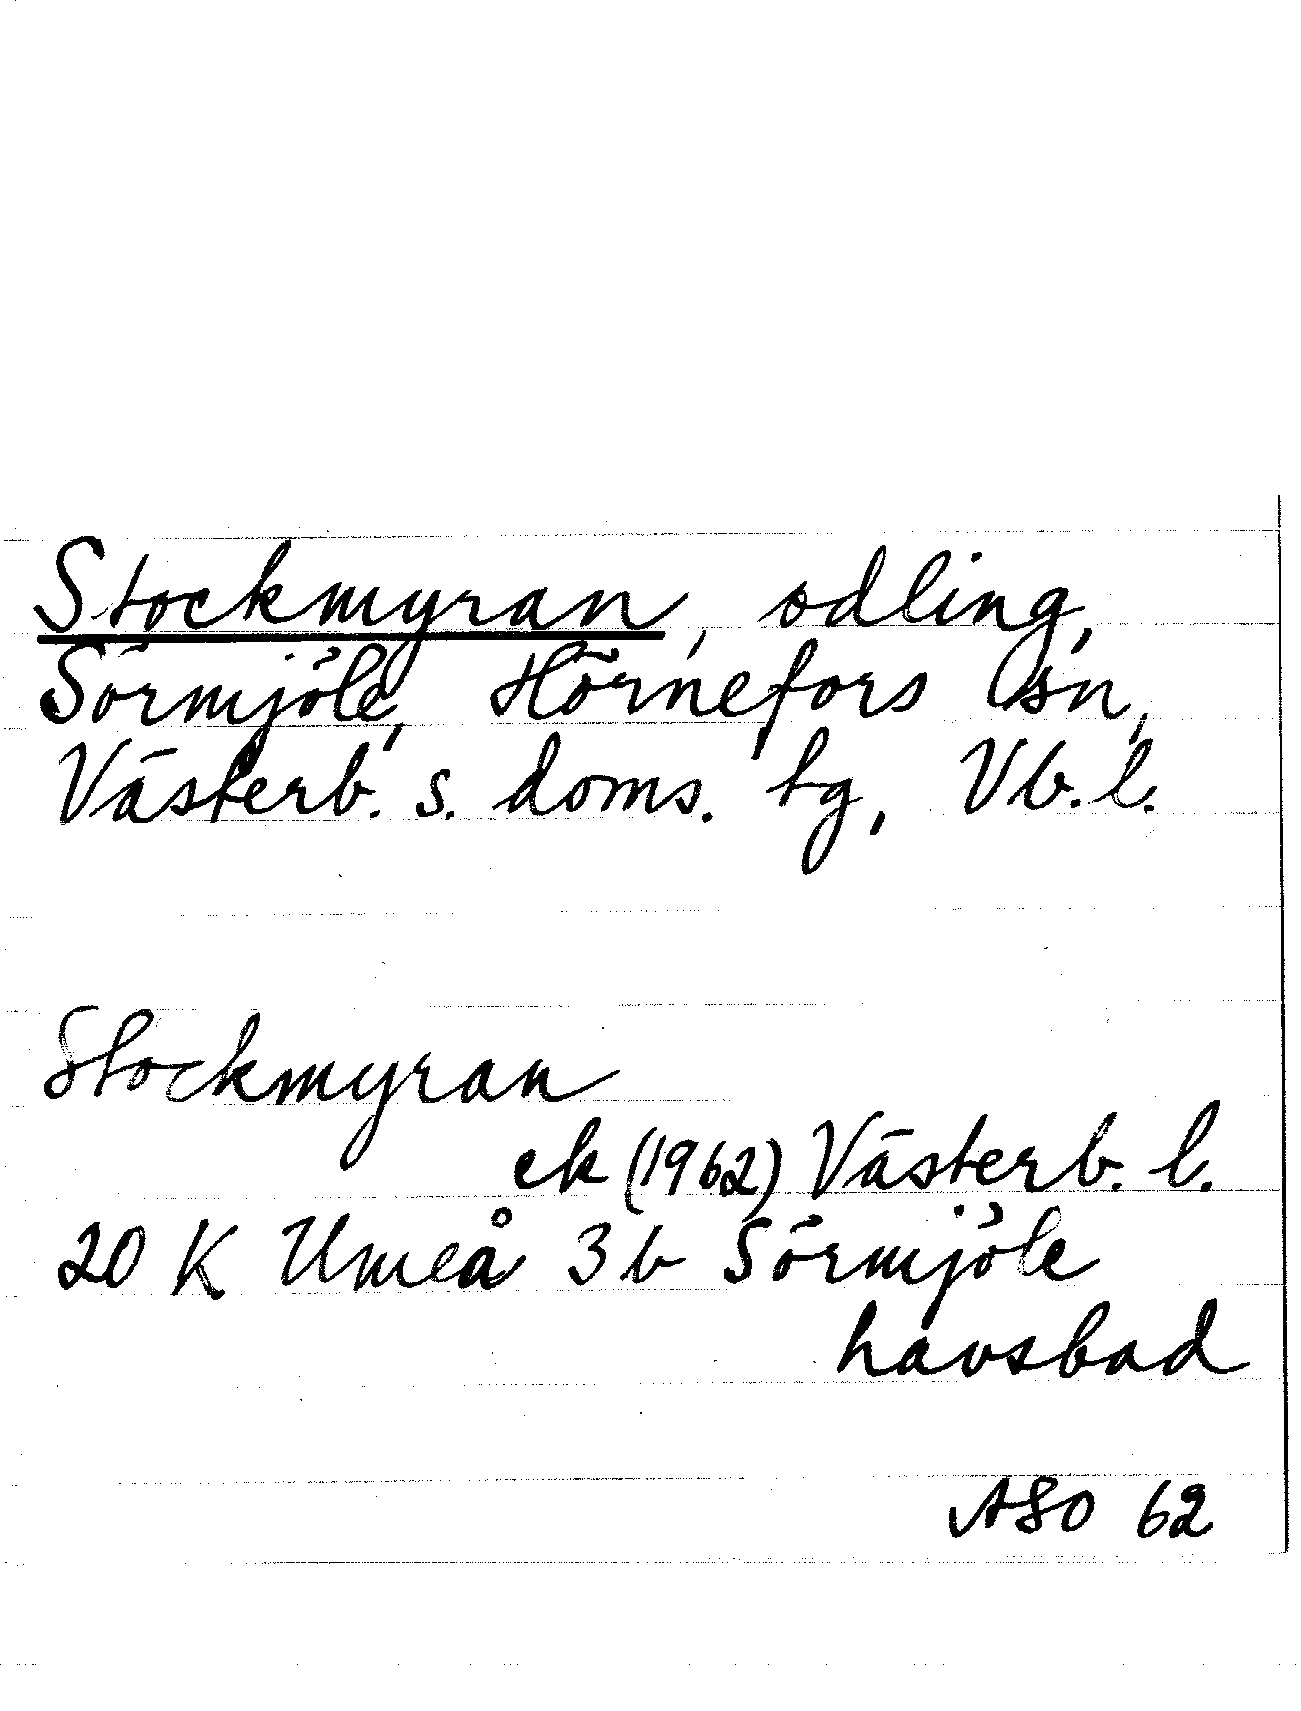 Stockmyran, odling,
Sörmjöle, Hörnefors sn,
Västerb. s. doms. tg, Vb. l.
Stockmyran
ek (1962) Västerb. l.
20 K Umeå 3 b Sörmjöle
havsbad
ASO 62